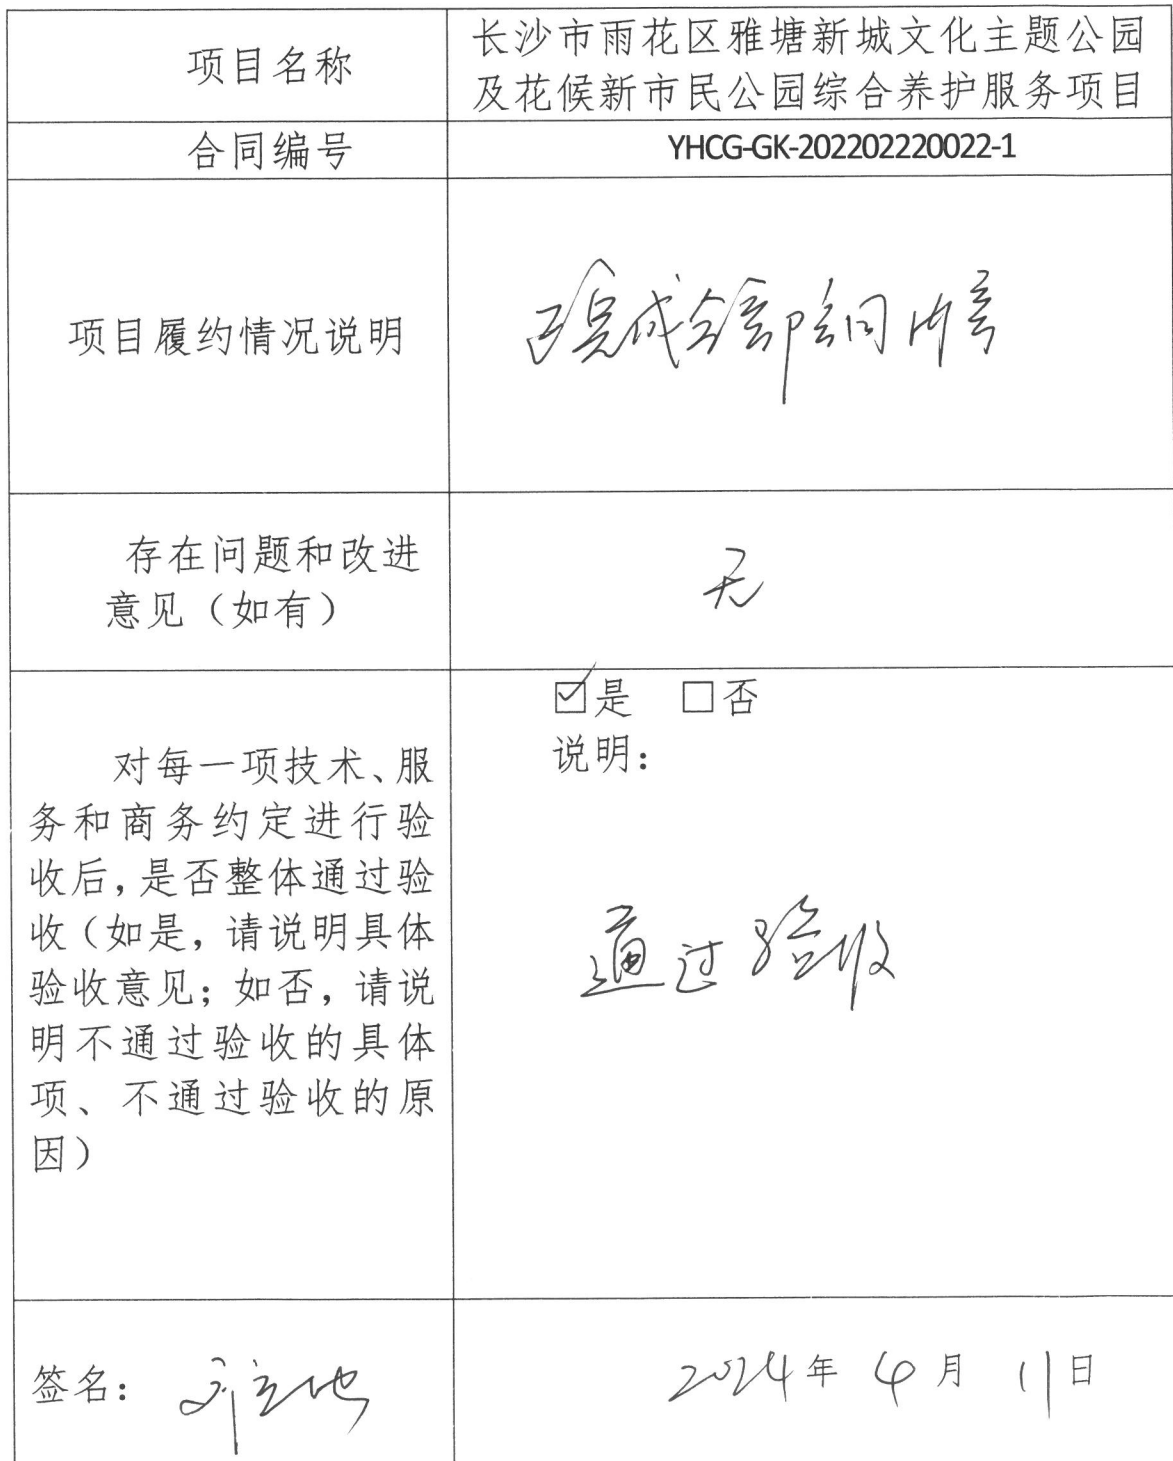 项目名称
长沙市雨花区雅塘新城文化主题公园
及花候新市民公园综合养护服务项目
合同编号
YHCG-GK-202202220022-1
项目履约情况说明
已完成全部合同内容
存在问题和改进
意见（如有）
无
☑是 □否
说明：
对每一项技术、服
务和商务约定进行验
收后，是否整体通过验
收（如是，请说明具体
验收意见；如否，请说
明不通过验收的具体
项、不通过验收的原
因）
通过验收
签名：
2024年4月11日